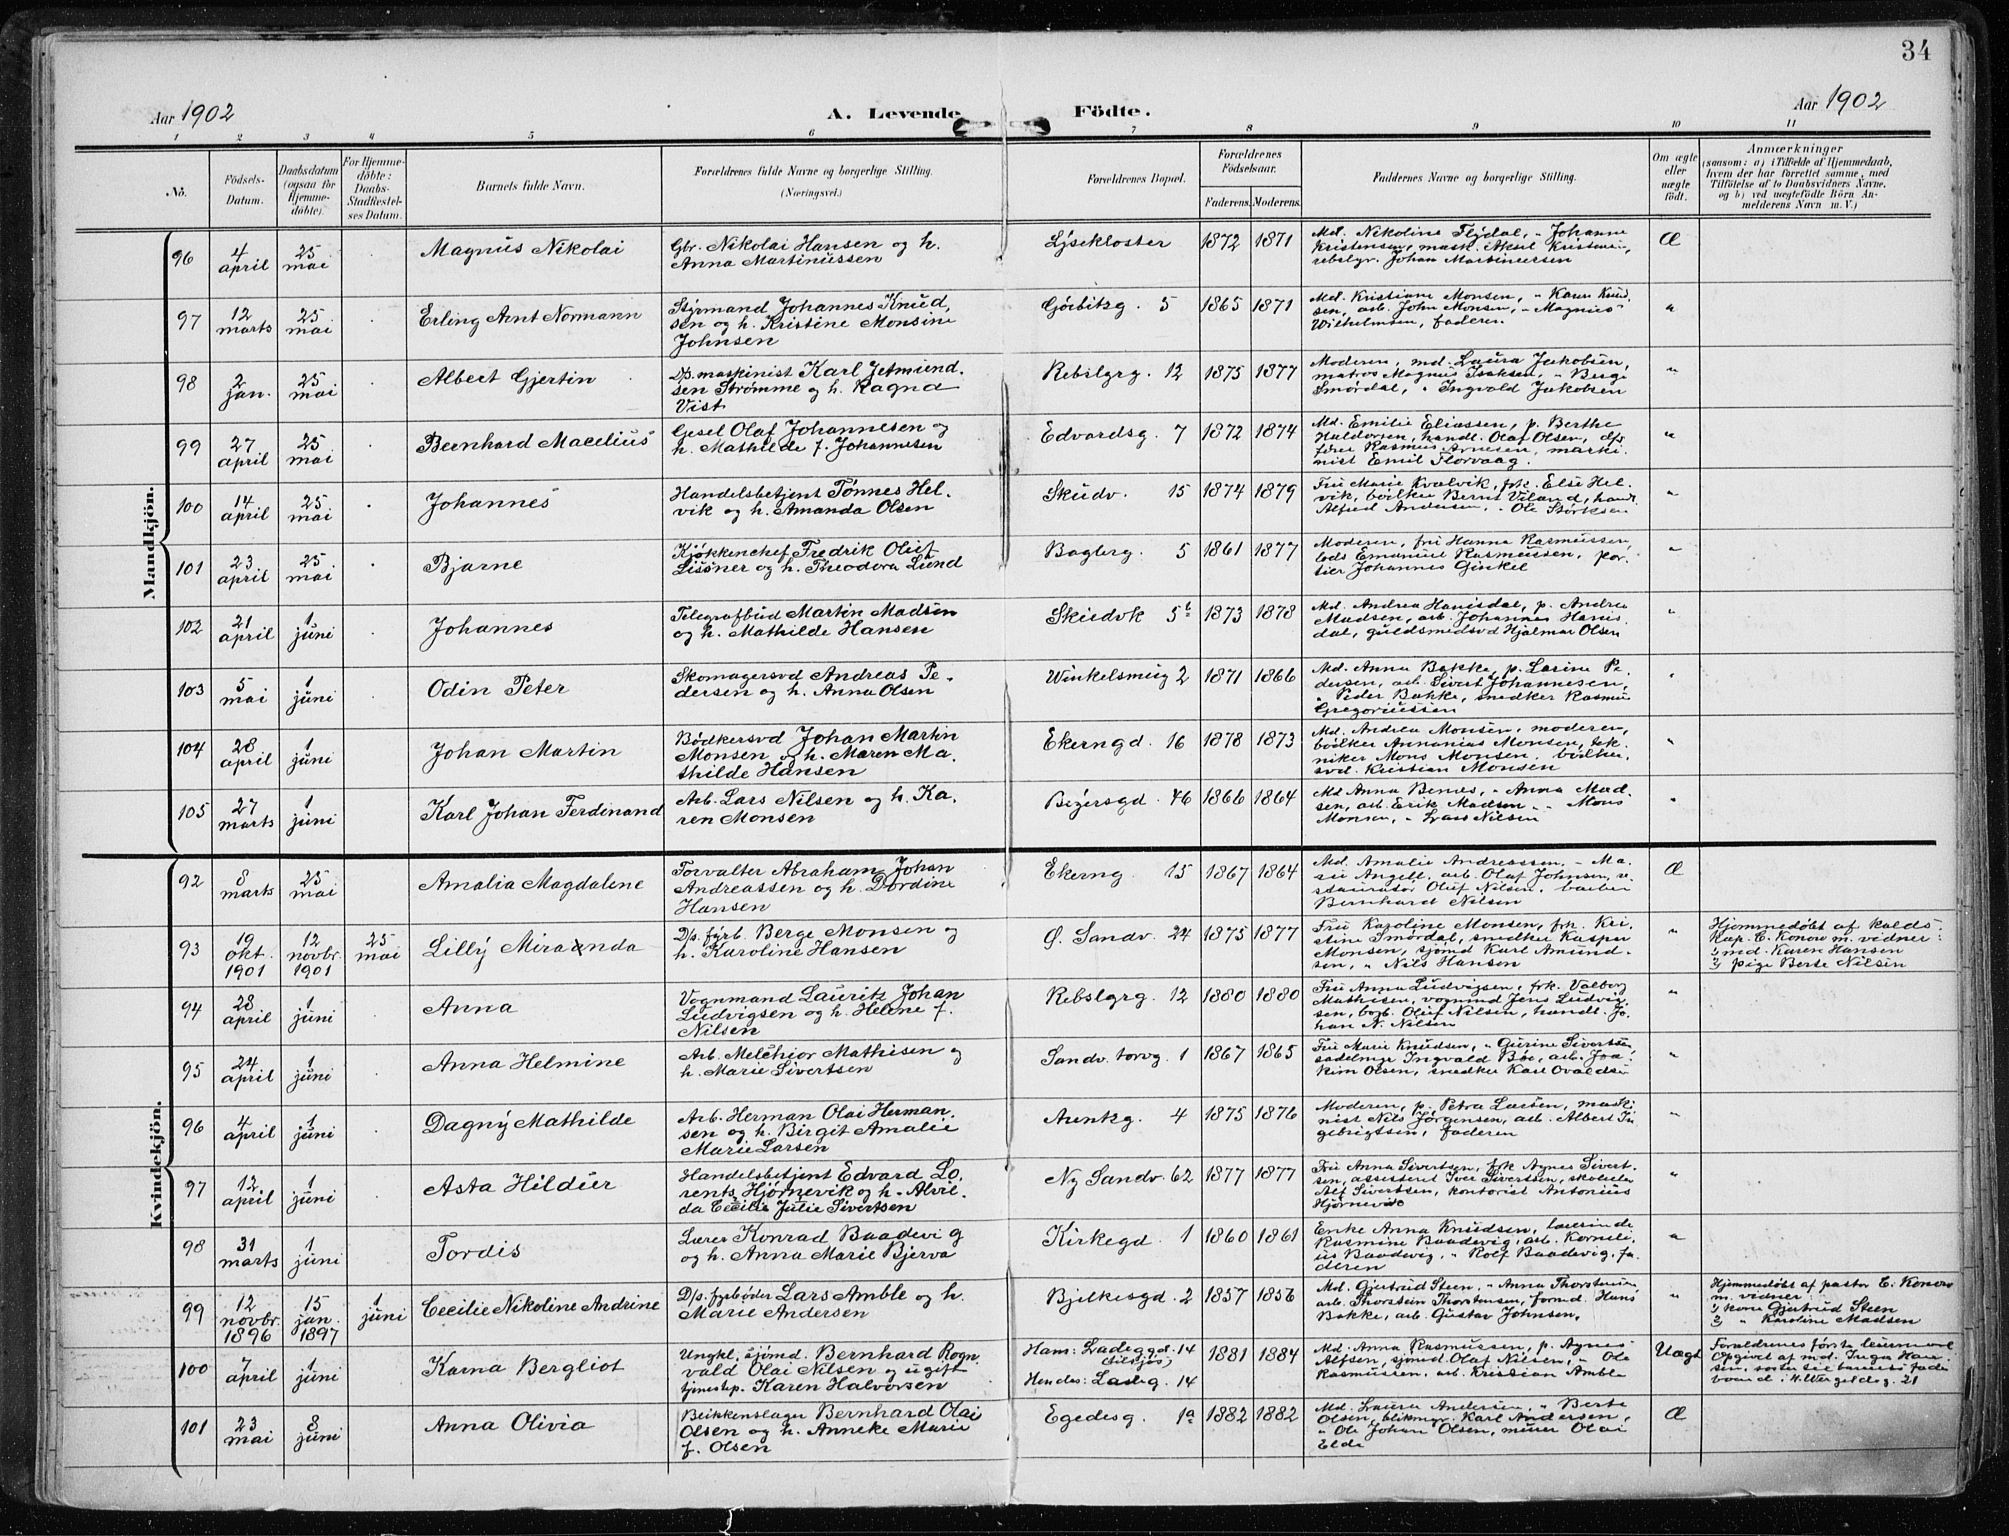 34
Aar 1902
A. Levende Födte.
Aar 1902
1 2 3 4 5 6 7 8 9 10 11
No.
Födsels-Datum.
Daabsdatum (ogsaa for Hjemmedöbte).
For Hjemmedöbte: Daabs-Stadfæstelses Datum.
Barnets fulde Navn.
Forældrenes fulde Navne og borgerlige Stilling. (Næringsvei.)
Forældrenes Bopæl.
Forældrenes Födselsaar.
Faderens. Moderens.
Faddernes Navne og borgerlige Stilling.
Om ægte eller uægte födt.
Anmærkninger
(saasom: a) i Tilfelde af Hjemmedaab, hvem der har forrettet samme, med Tilföielse af to Daabsvidners Navne, og b) ved uægtefödte Börn Anmelderens Navn m. V.)
Mandkjön.
96 4 april 25 mai Magnus Nikolai
Gbr. Nikolai Hansen og h.
Anna Martinussen
Lysekloster 1872 1871
Md. Nikoline Flydal, " Johanne
Kristensen, mask. Aksel Kristensen,
rebslgr. Johan Martinussen
Æ
97 12 marts 25 mai Erling Arnt Normann
Styrmand Johannes Knud,
sen og h. Kristine Monsine
Johnsen
Gørbitzg. 5 1865 1871
Md. Kristiane Monsen, " Karen Knud
sen, arb. John Monsen, " Magnus
Wilhelmsen, faderen
"
98 2 jan. 25 mai Albert Gjertin
D/s. maskinist Karl Jetmund.
sen Strømme og h. Ragna
Vist
Rebslgrg. 12 1875 1877
Moderen, md. Laura Jakobsen,
matros Magnus Isaksen, " Birge
Smørdal, " Ingvald Jakobsen
"
99 27 april 25 mai Bernhard Macelius
Gesel Olaf Johannesen og
h. Mathilde f. Johannesen
Edvardsg. 7 1872 1874
Md. Emilie Eliassen, p. Berthe
Haldorsen, handl. Olaf Olsen, dfs
fører Rasmus Arnesen, maski
nist Emil Florvaag.
"
100 14 april 25 mai Johannes
Handelsbetjent Tønnes Hel.
vik og h. Amanda Olsen
Skudv. 15 1874 1879
Fru Marie Kvalvik, frk. Else Hel
vik, bølker Bernt Viland, handl
Alfred Andersen, " Ole Størksen
"
101 23 april 25 mai Bjarne
Kjøkkenchef Fredrik Oluf
Lisøner og h. Theodora Lund
Baglerg. 5 1861 1877
Moderen, fru Hanna Rasmussen,
lods Emanuel Rasmussen, por
tier Johannes Ginkel
"
102 21 april 1 juni Johannes
Telegrafbud Martin Madsen
og h. Mathilde Hansen
Skudvk 5b 1873 1878
Md. Andrea Hanisdal, p. Andrea
Madsen, arb. Johannes Hanis
dal, guldsmedsvd Hjalmar Olsen
"
103 5 mai 1 juni Odin Peter
Skomagersvd Andreas Pe-
dersen og h. Anna Olsen
Winkelsmug 2 1871 1866
Md. Anna Bakke, p. Lasine Pe
dersen, arb. Sivert Johannesen,
" Peder Bakke, snedker Rasmus
Gregoriussen
"
104 28 april 1 juni Johan Martin
Bødkersvd Johan Martin
Monsen og h. Maren Ma.
thilde Hansen
Ekerngd. 16 1878 1873
Md. Andrea Monsen, moderen,
bølker Annanias Monsen, tek.
niker Mons Monsen, bølker
svd. Kristian Monsen
"
105 27 marts 1 juni Karl Johan Ferdinand
Arb. Lars Nilsen og h. Ka.
ren Monsen
Bizersgd. 46 1866 1864
Md Anna Benes, " Anna Mad.
sen, arb. Erik Madsen " Mons
Monsen, " Lars Nilsen
"
Kvindekjön.
92 8 marts 25 mai Amalia Magdalene
Forvalter Abraham Johan
Andreassen og h. Dordine
Hansen
Ekerng. 15 1867 1864
Md. Amalie Andreassen, " Ma.
sie Angell, arb. Olaf Johnsen, re
stauratør Oluf Nilsen, barber
Bernhard Nilsen
Æ
93 19 okt. 1901 12 novbr. 1901 25 mai Lilly Miranda
D/s. fyrb. Berge Monsen og
h. Karoline Hansen
Ø. Sandv. 24 1875 1877
Fru Karoline Monsen, frk. Kri
stine Smørdal, snedker Kasper
Monsen, sjømd Karl Amund.
sen, " Nils Hansen
"
Hjemmedøbt af kalds
kap. E. Konow m. vidner:
1) md. Karen Hansen
2) pige Berte Nilsen
94 28 april 1 juni Anna
Vognmand Lauritz Johan
Ludvigsen og h. Helene f.
Nilsen
Rebslgrg. 12 1880 1880
Fru Anna Ludvigsen, frk. Valborg
Mathisen, vognmd Jens Ludvig
sen, bogb. Oluf Nilsen, handl. Jo,
han N. Nilsen
"
95 24 april 1 juni Anna Helmine
Arb. Melchior Mathisen og
h. Marie Sivertsen
Sandv. torvg. 1 1867 1865
Fru Marie Knudsen, " Gurine Sivertsen
sadelmgr Ingvald Bøe, arb. Joa,
kim Olsen, snedker Karl Ovaldsen
"
96 4 april 1 juni Dagny Mathilde
Arb. Herman Olai Herman.
sen og h. Birgit Amalie
Marie Larsen
Aunkg. 4 1875 1876
Moderen, p. Petra Larsen, maski
nist Nils Jørgensen, arb. Albert In
gebrigtsen, faderen
"
97 12 april 1 juni Asta Hildur
Handelsbetjent Edvard Lo,
rents Hjørnevik og h. Alvil.
da Cecilie Julie Sivertsen
Ny Sandv. 62 1877 1877
Fru Anna Sivertsen, frk Agnes Sivert.
sen, assistent Iver Sivertsen, skoleelev
Alf Sivertsen, kontorist Antonius
Hjørnevik
"
98 31 marts 1 juni Tordis
Lærer Konrad Baadevig
og h. Anna Marie Bjerva
Kirkegd. 1 1860 1861
Enke Anna Knudsen, lærerinde
Rasmine Baadevig, arb. Korneli
us Baadevig, " Rolf Baadevig, fa
deren
"
99 12 novbr. 1896 15 jan. 1897 1 juni Cecilie Nikoline Andrine
D/s. fyrbøder Lars Amble og h.
Marie Andersen
Bjelkesgd. 2 1857 1856
Md. Gjertrud Steen, " Anna Thorstensen
arb. Thorstein Thorstensen, formd. Hans
Bakke, arb. Gustav Johnsen,
"
Hjemmedøbt af pastor E. Konow
m. vidner:
1) kone Gjertrud Steen
2) " Karoline Madsen
100 7 april 1 juni Karna Bergliot
Ungkl. sjømd. Bernhard Rogn
vald Olai Nilsen og ugift
tjenestep. Karen Halvorsen
Hans: Ladeggd. 14
Hendes: Ladeg. 14
1881 1884
Md. Anna Rasmussen, p. Agnes
Alfsen, sjømd. Olaf Nilsen, " Ole
Rasmussen, arb. Kristian Amble
Uægt
Forældrenes første leiermaal
Opgivet af md. Inga Han
sen, søster til barnets fader
boende i Hvergeldsg. 21
101 23 mai 8 juni Anna Olivia
Blikkenslager Bernhard Olai
Olsen og h. Anneke Marie
f. Olsen
Egedesg. 1a 1882 1882
Md. Laura Andersen, " Berte
Olsen, blikmgr. Karl Andersen,
" Ole Johan Olsen, murer Olai
Elde
Æ